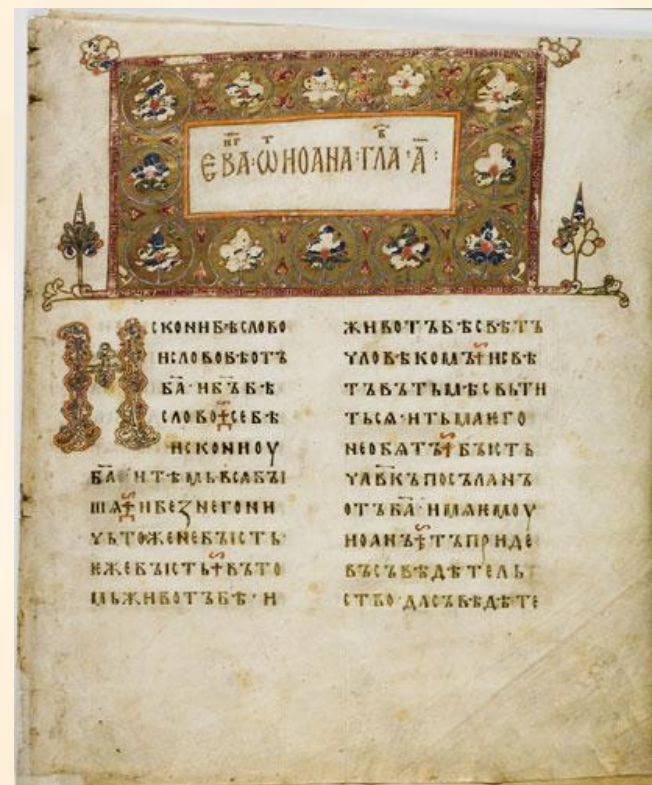 ЄВАⷩ҇ⷢ҇·Ѡⷮ ИОАНА·ГЛАⷡ҇·А҃:
ИСКОНИБѢСЛОВО
ИСЛОВОБѢОТЪ
БА҃·ИБЪ҃БѢ
СЛОВО·СЕБѢ
ИСКОНИОУ
БА҃·ИТѢМЬВСꙖБЪІ
ШѦ·ИБЕЗНЕГОНИ
ЧЬТОЖЕНЕБЪІСТЬ·
ЕЖЕБЪІСТЬ·ВЪТО
МЬЖИВОТЪБѢ·И
ЖИВОТЪБѢСВѢТЪ
ЧЛОВѢКОМЪ·ИСВѢ
ТЪВЪТЬМѢСВЬТИ
ТЬСѦ·ИТЬМАѤГО
НЕОБѦТЪ·БЪІСТЬ
ЧЛ҃ВКЪПОСЪЛАНЪ
ОТЪБА҃·ИМѦѤМОУ
ИОАНЪ·ТЪПРИДЕ
ВЪСЪВѢДѢТЕЛЬ
СТВО·ДАСЪВѢДѢТЕ